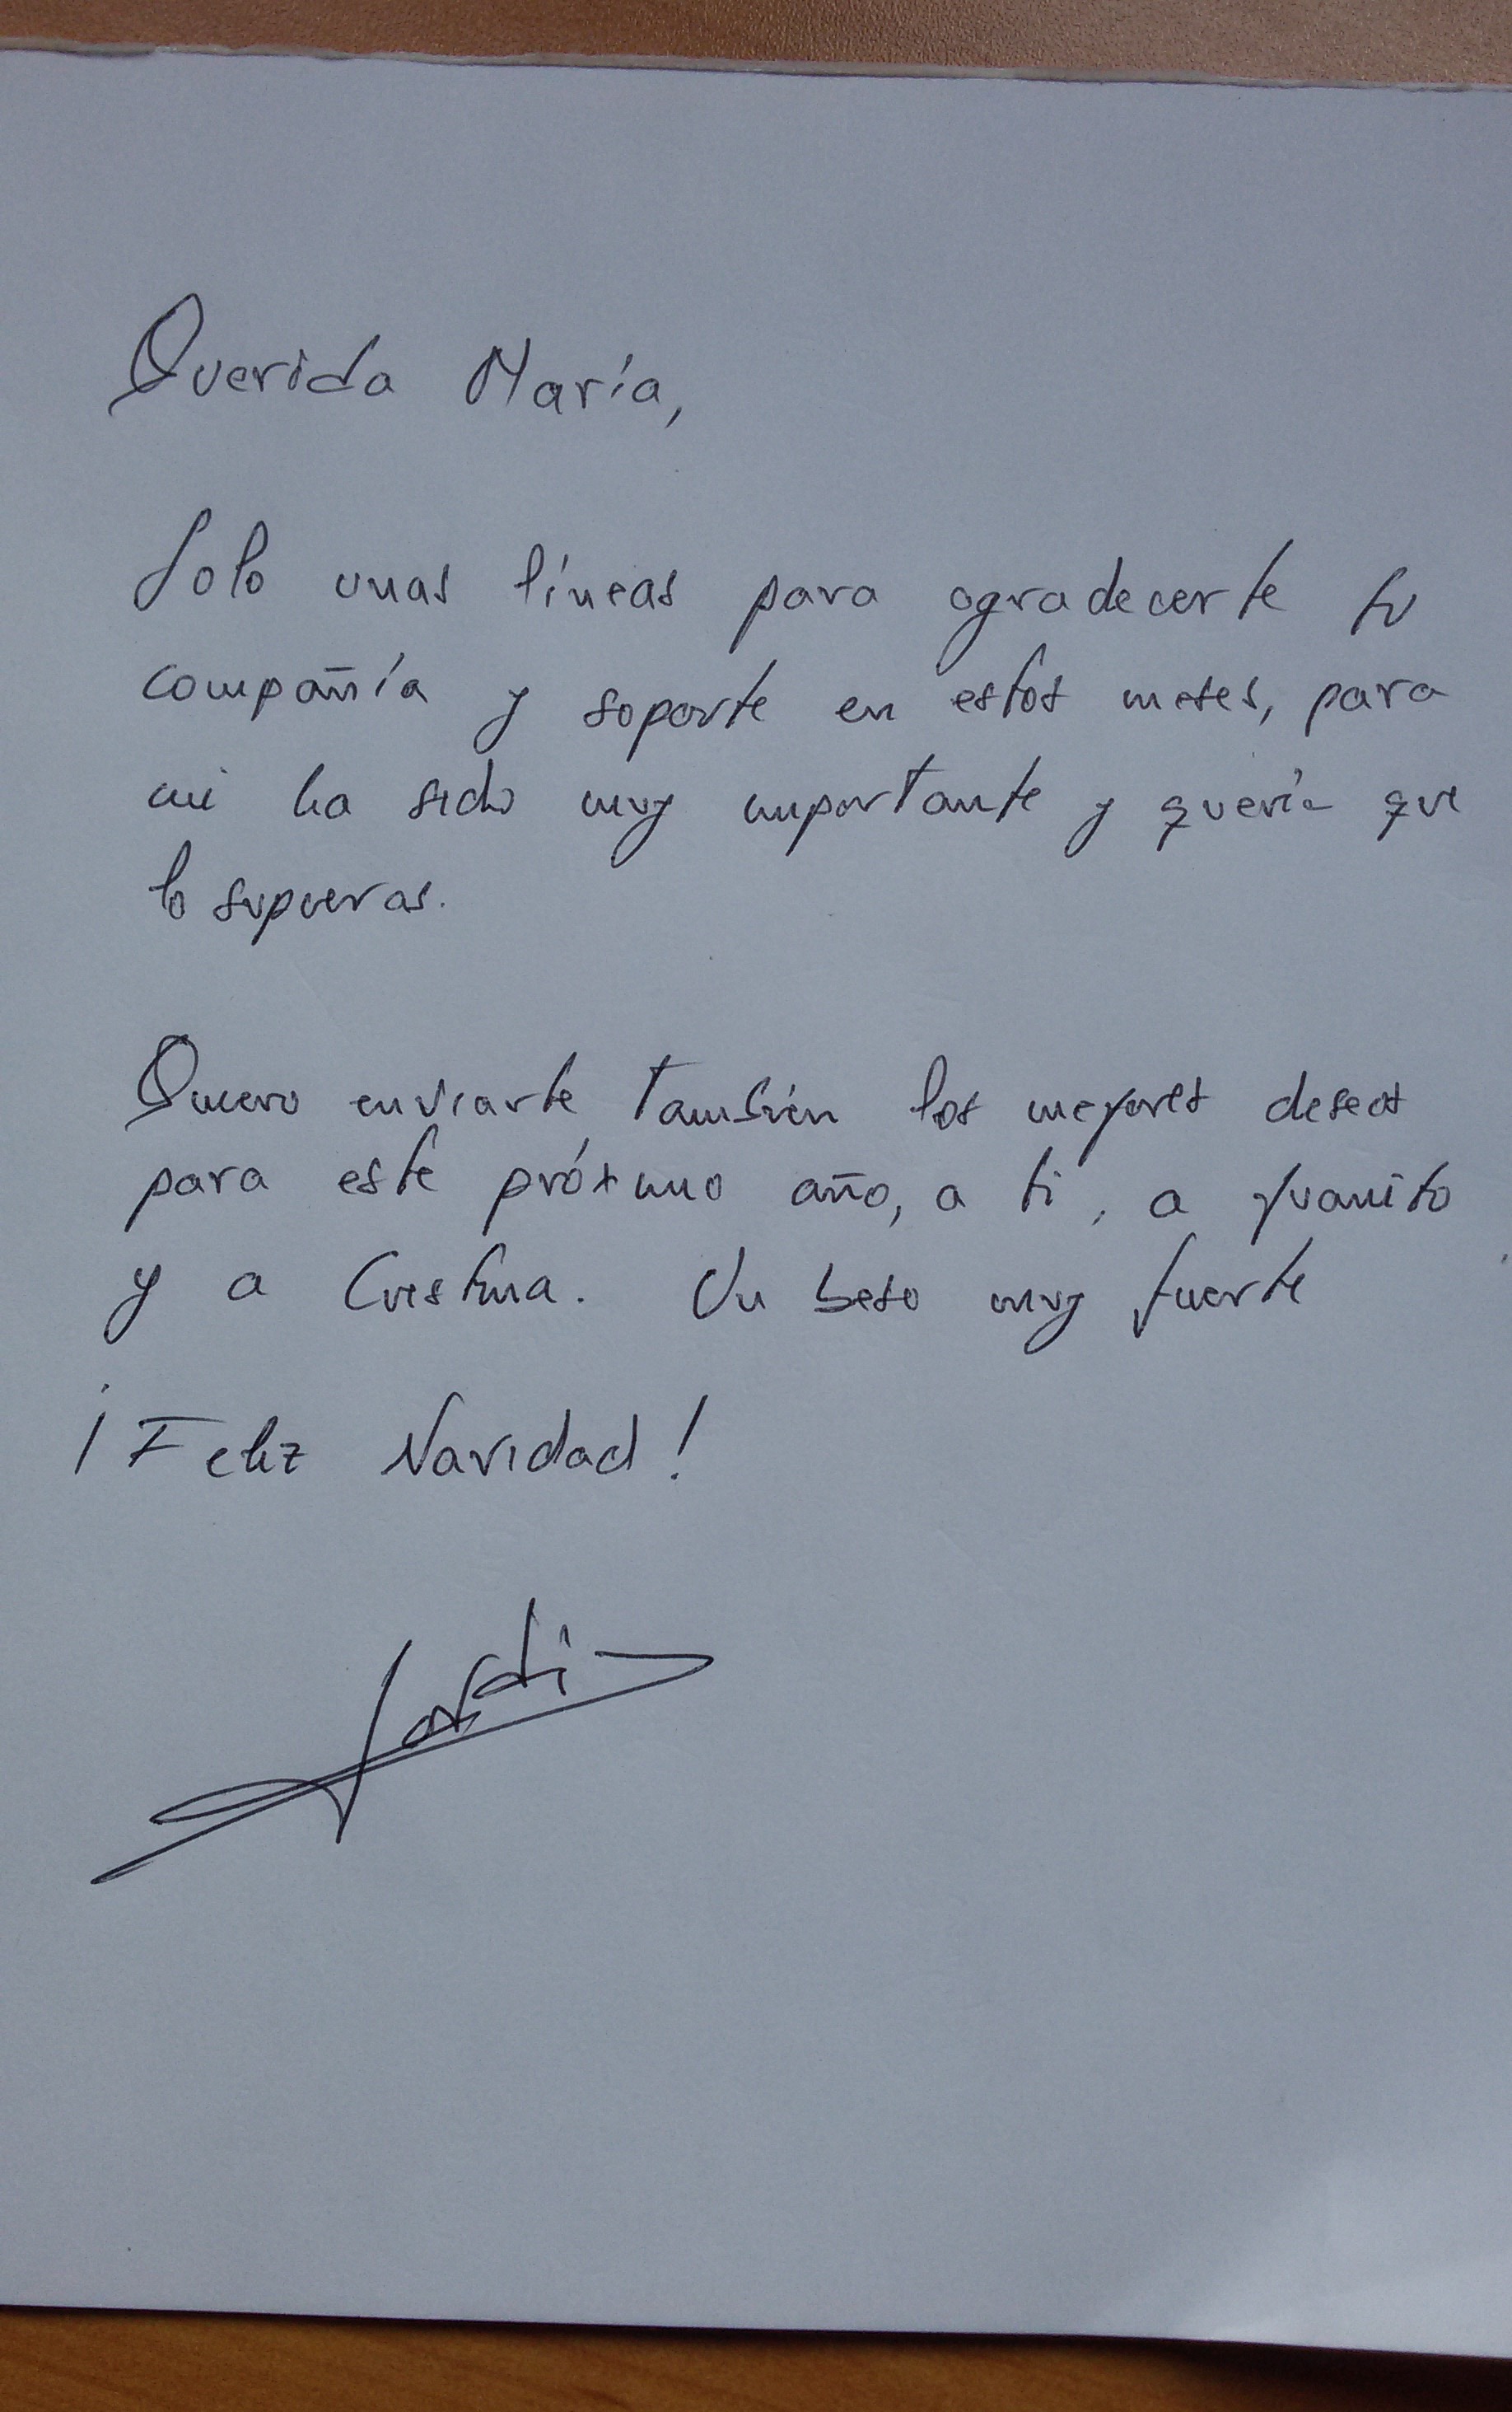 Querida María,
Solo unas líneas para agradecerte tu
compañía y soporte en estos meses, para
mi ha sido muy importante y quería que
lo supieras.
Quiero enviarte también los mejores deseos
para este próximo año, a ti, a Juanito
y a Cristina. Un beso muy fuerte
¡Feliz Navidad!
Jordi